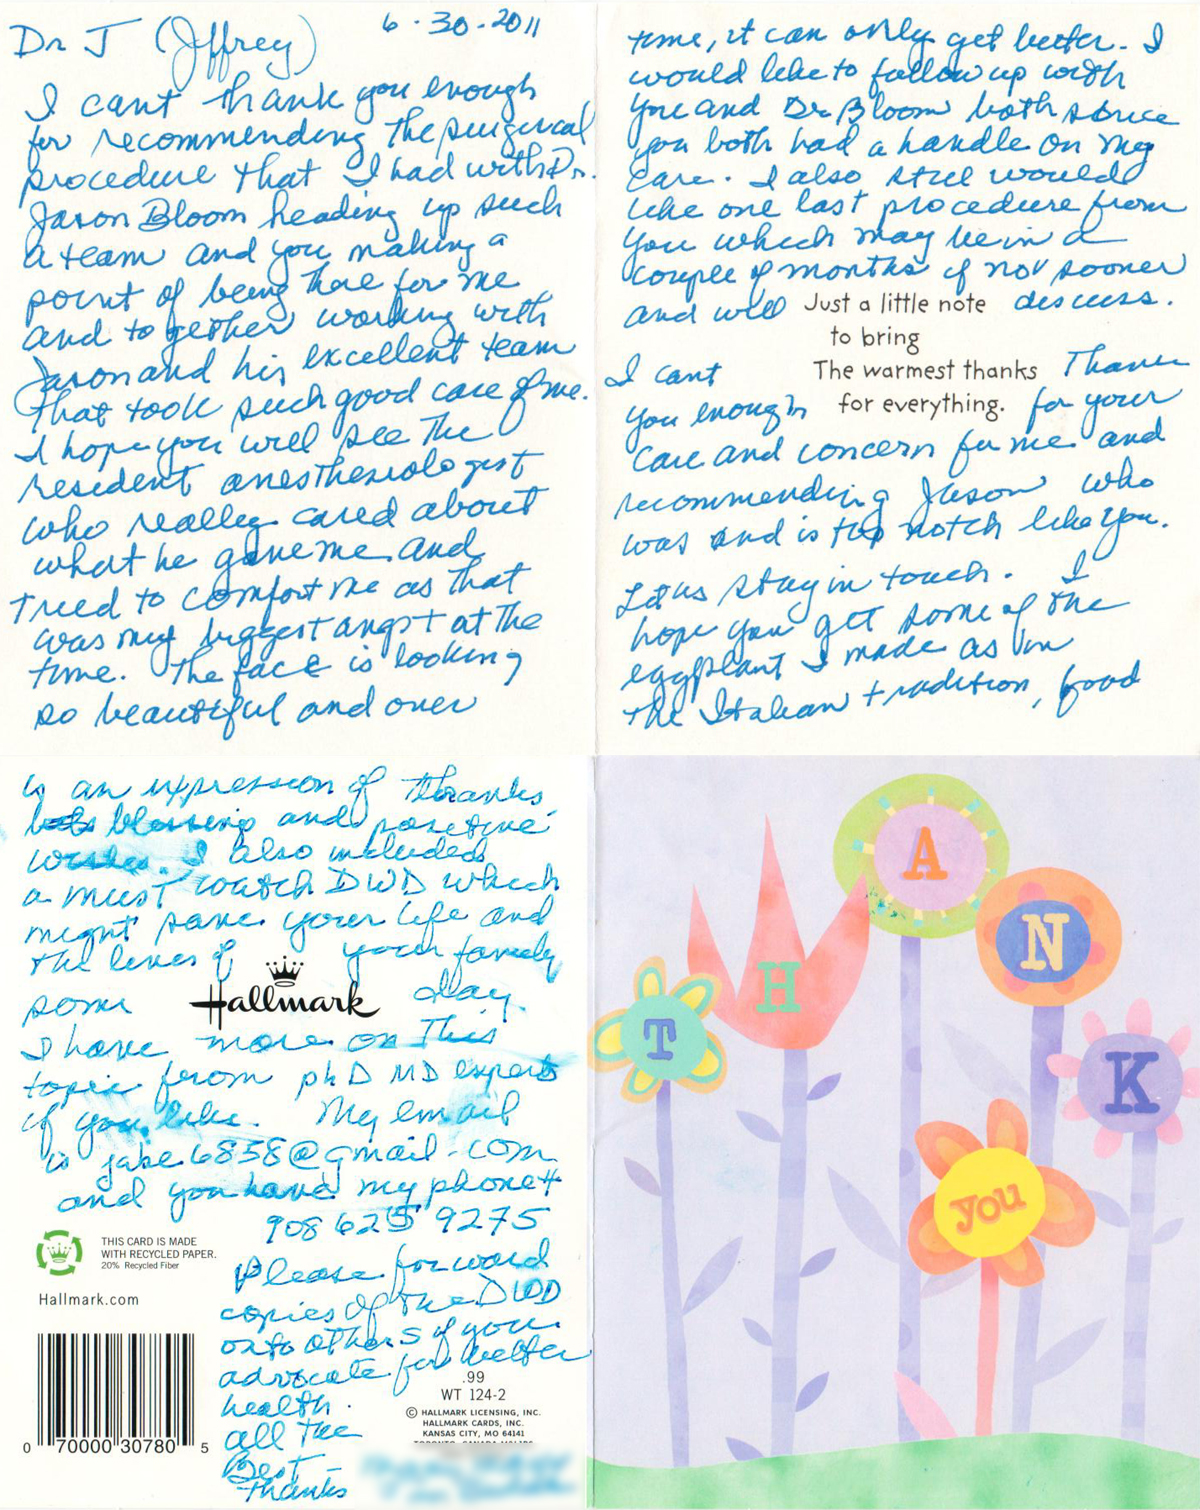 6·30·2011
Dr J (Jffrey)
I cant thank you enough
for recommending the surgical
procedure that I had with Dr.
Jason Bloom heading up such
a team and you making a
point of being there for me
and together working with
Jason and his excellent team
that took such good care of me.
I hope you will see the
resident anesthesiologist
who really cared about
what he gave me and
tried to comfort me as that
was my biggest angst at the
time. The face is looking
so beautiful and over
time, it can only get better. I
would like to follow up with
you and Dr Bloom both since
you both had a handle on my
care. I also still would
like one last procedure from
you which may be in a
couple of months if not sooner
and will discuss.
Just a little note
to bring
The warmest thanks
for everything.
I cant Thank
you enough for your
care and concern for me and
recommending Jason who
was and is top notch like you.
Let us stay in touch. I
hope you get some of the
eggplant I made as in
the Italian tradition, food
is an expression of thanks
blessing and positive
wishes. I also included
a must watch DVD which
might save your life and
the lives of your family
some day.
Hallmark
I have more on this
topic from phD MD experts
if you like. My email
is jake6858@gmail.com
and you have my phone #
908 625 9275
Please forward
copies of the DVD
onto others if you
advocate for better
health.
all the
Best -
thanks
THIS CARD IS MADE
WITH RECYCLED PAPER.
20% Recycled Fiber
Hallmark.com
0 70000 30780 5
.99
WT 124-2
© HALLMARK LICENSING, INC.
HALLMARK CARDS, INC.
KANSAS CITY, MO 64141
T H A N K
you